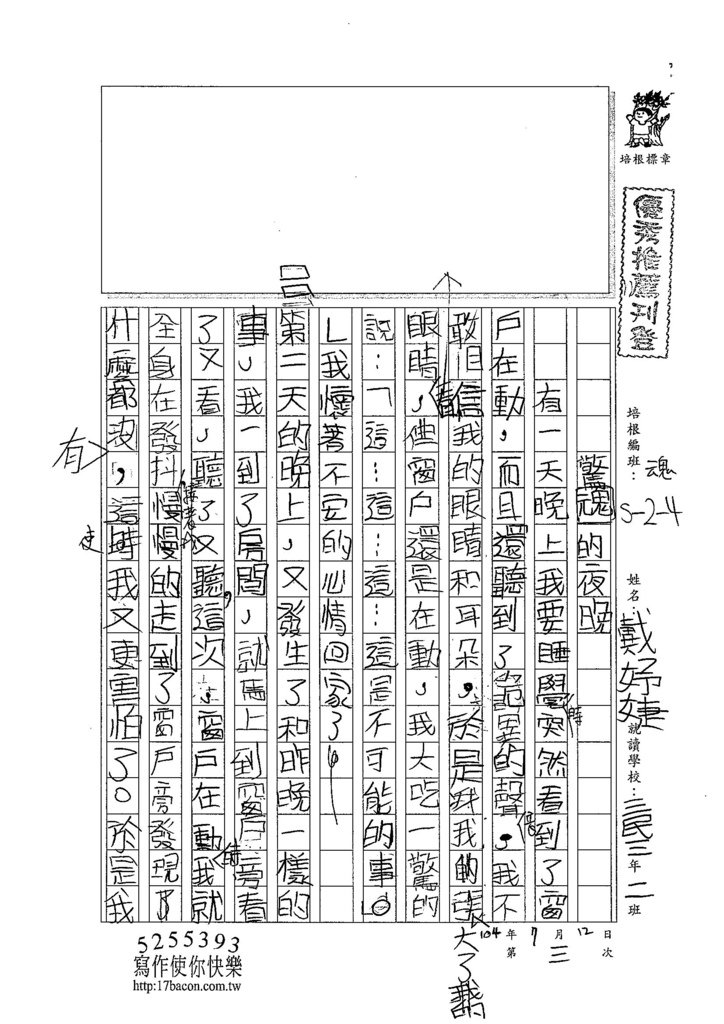 培根標章
優秀推薦刊登
培根編班：魂 S-2-4
姓名：戴妤婕
就讀學校：三民三年二班
104年7月12日
第三次
驚魂的夜晚
有一天晚上我要睡覺時突然看到了窗
戶在動，而且還聽到了詭異的聲，我不
敢相信我的眼睛和耳朵，於是我張大了我的
眼睛，看但窗戶還是在動，我大吃一驚的
說：「這…這…這…這是不可能的事。
」我懷著不安的心情回家了
第二天的晚上，又發生了和昨晚一樣的
事，我一到了房間，就馬上到窗戶旁看
了又看，聽了又聽，這次，窗戶在動時我就
全身在發抖慢慢的走到了窗戶旁發現
什麼都沒有，這時使我又更害怕了。於是我
5255393
寫作使你快樂
http:17bacon.com.tw